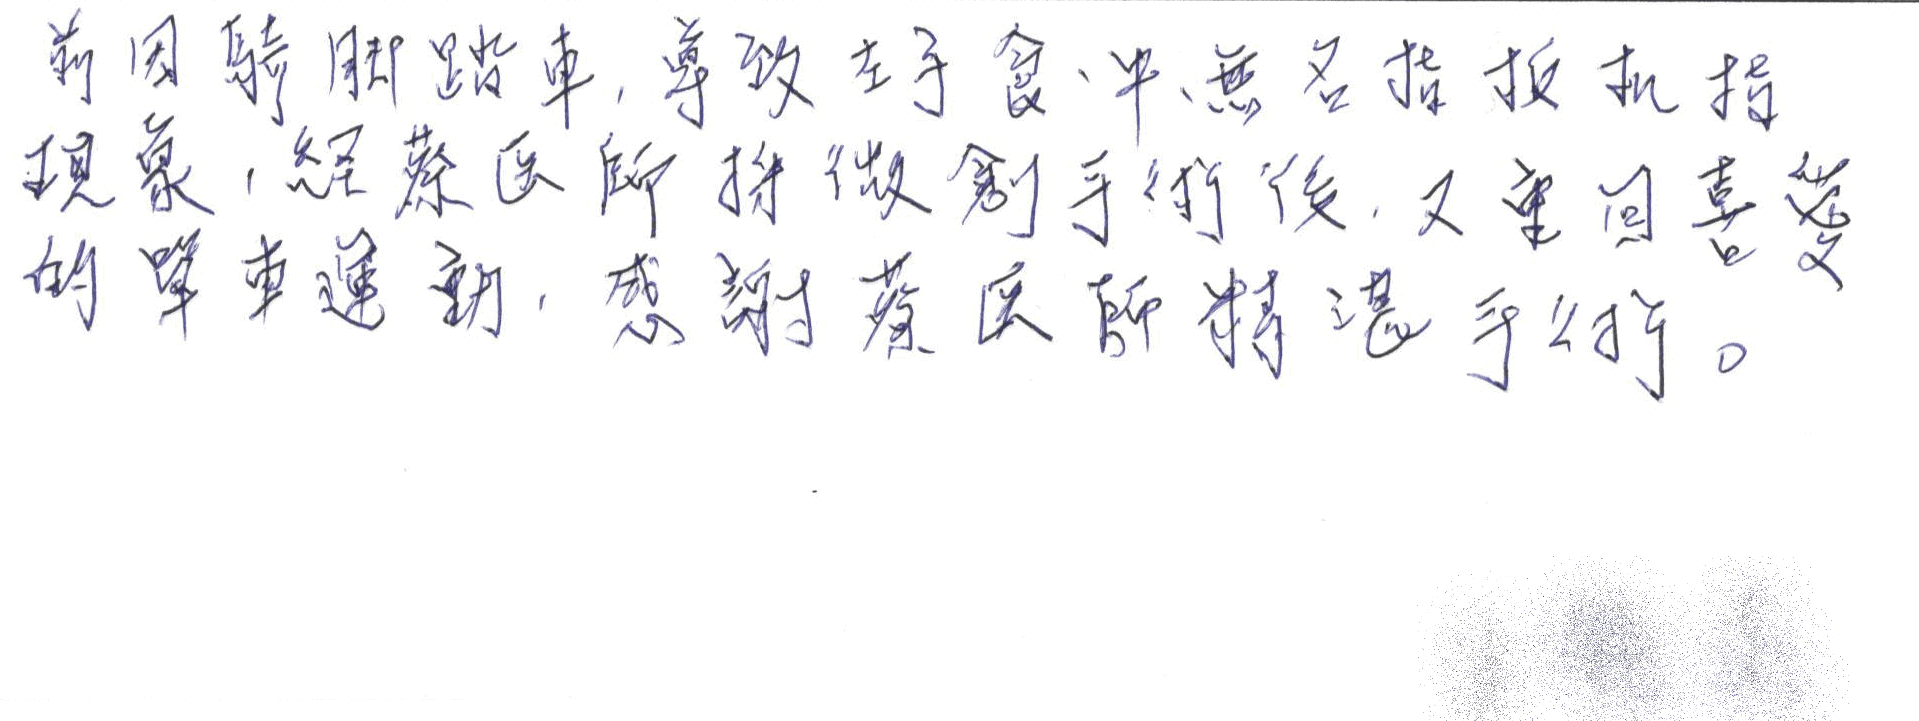 前因騎脚踏車,導致左手食、中、無名指扳机指
現象,經蔡医師採微創手術後,又重回喜愛
的單車運動,感謝蔡医師精湛手術。